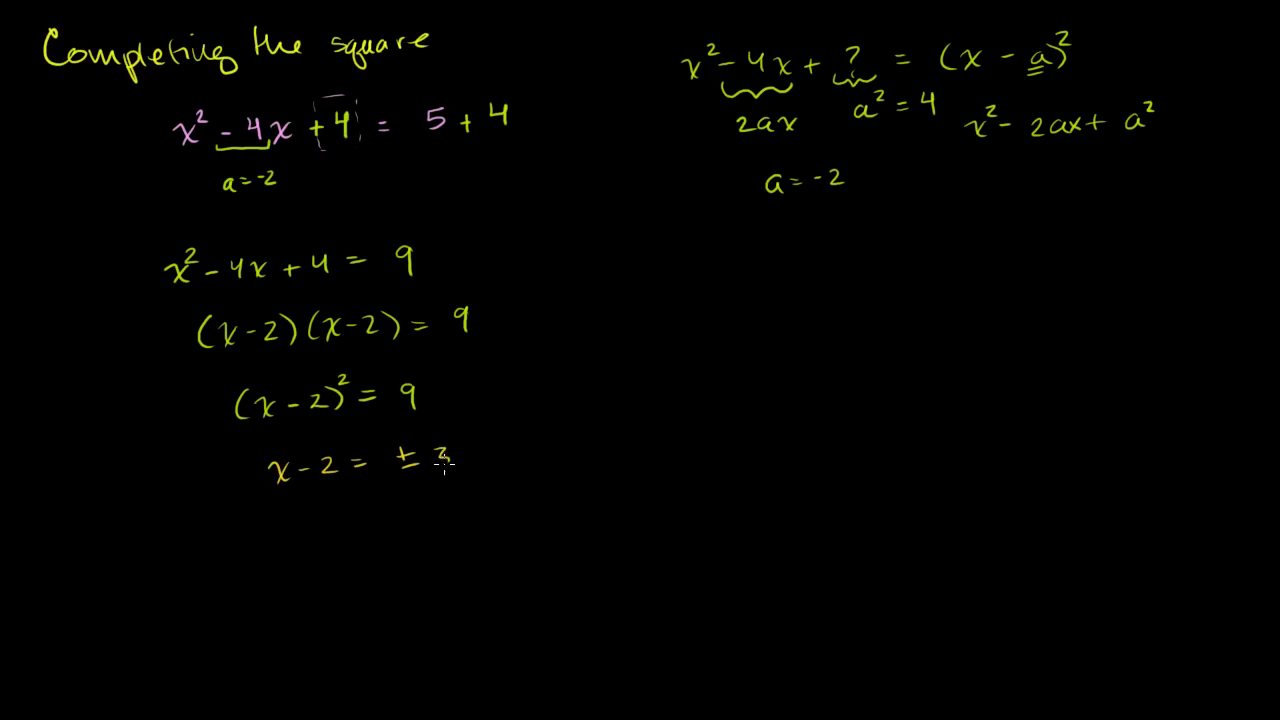 Completing the square
x² - 4x + 4 = 5 + 4
a = -2
x² - 4x + 4 = 9
(x - 2)(x - 2) = 9
(x - 2)² = 9
x - 2 = ± 3
x² - 4x + ? = (x - a)²
2ax a² = 4 x² - 2ax + a²
a = -2